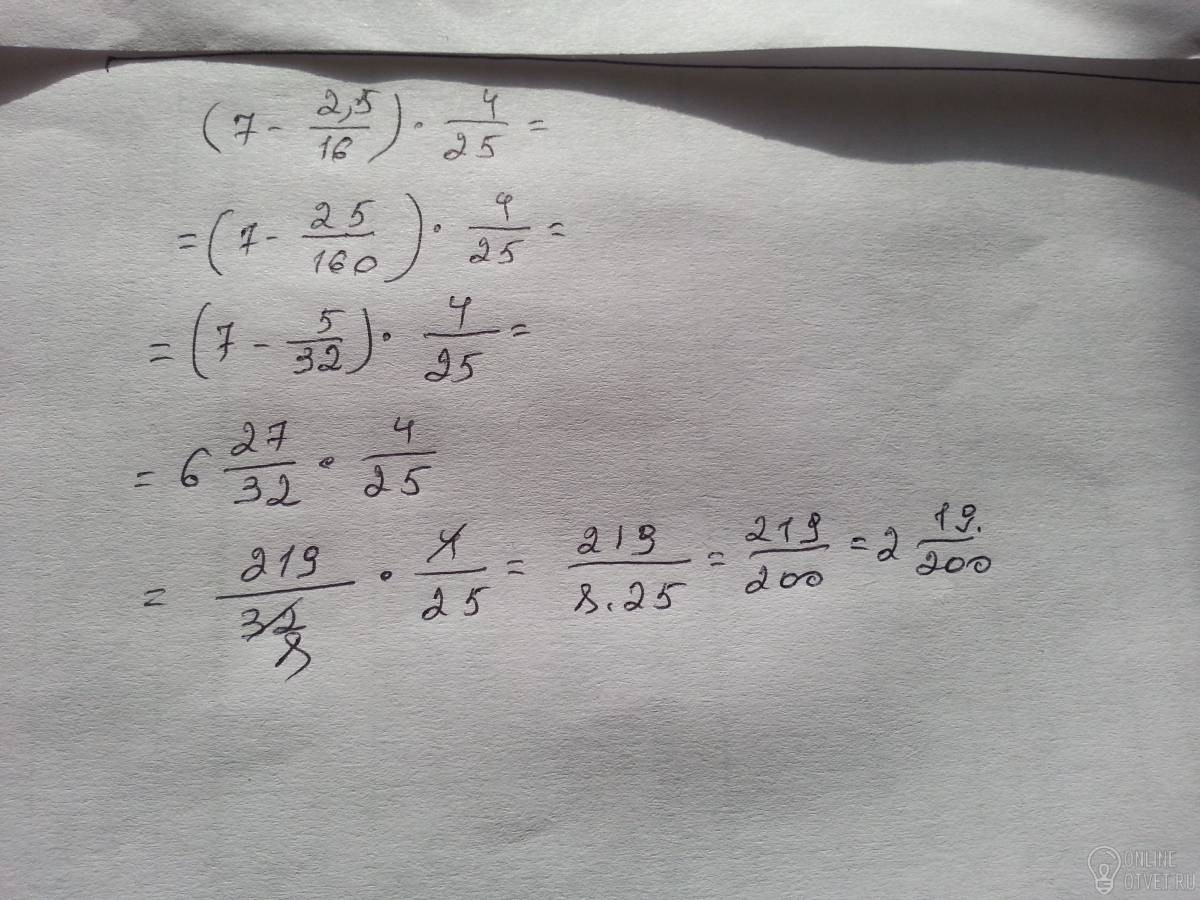 (7 - 2,5/16) · 4/25 =
= (7 - 25/160) · 4/25 =
= (7 - 5/32) · 4/25 =
= 6 27/32 · 4/25
= 219/32 8 · 4/25 = 219/8.25 = 219/200 = 2 19/200
ONLINE
OTVET.RU